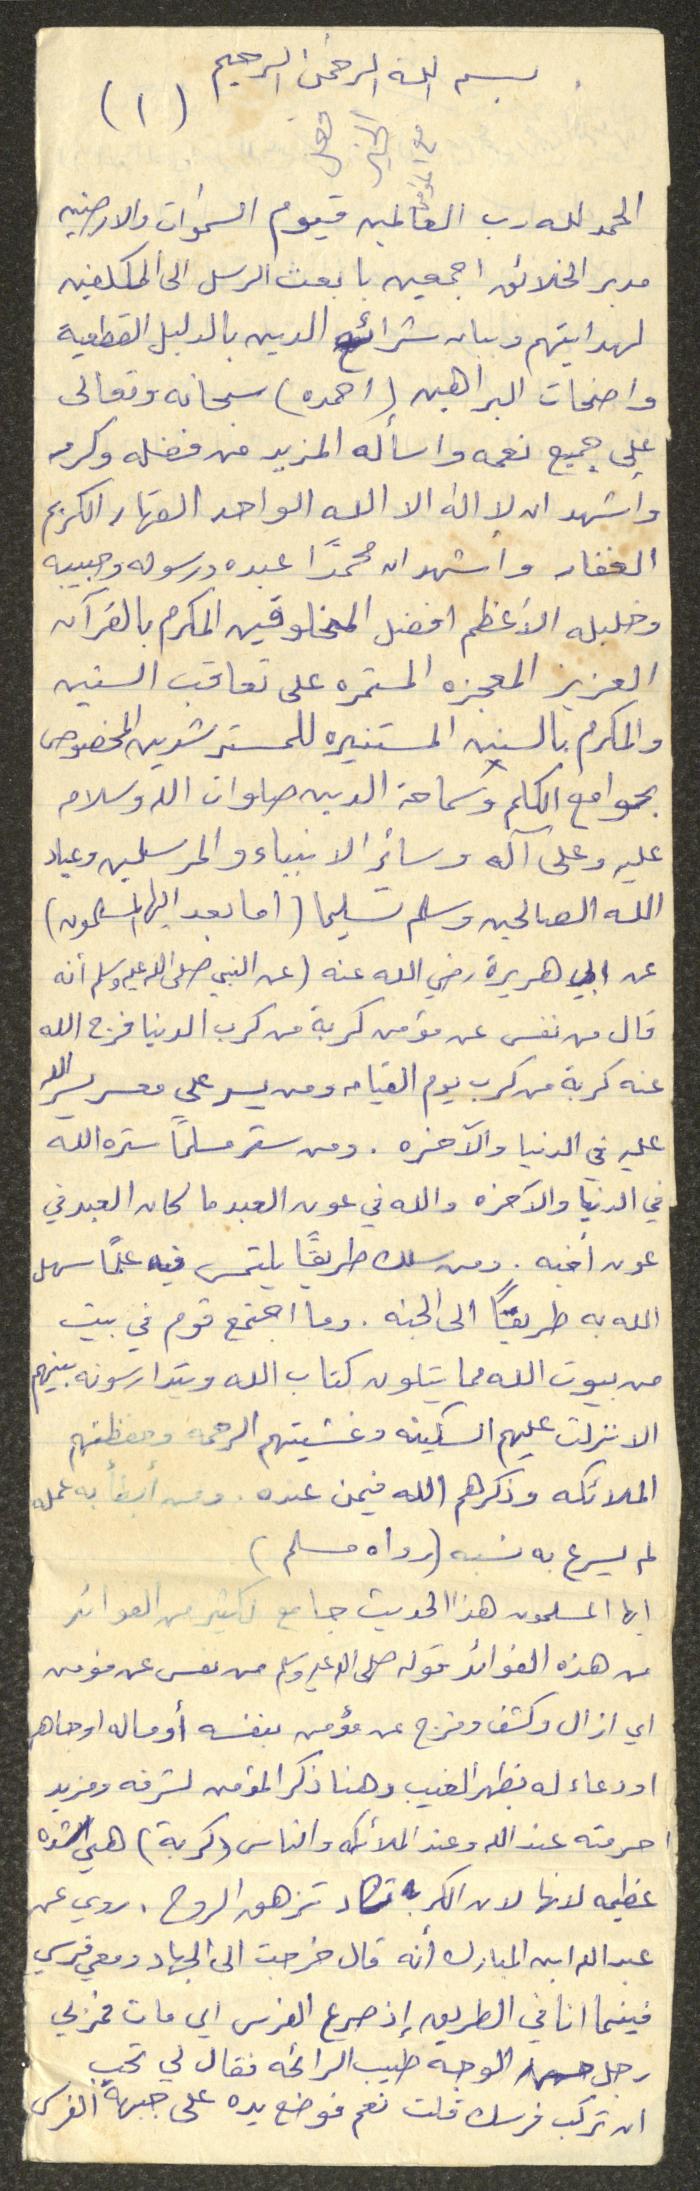 بسم الله الرحمن الرحيم
(١)
فعل
الخير
مع المؤمن
الحمد لله رب العالمين قيوم السموات والارضين
مدبر الخلائق اجمعين باعث الرسل الى المكلفين
لهدايتهم وبيان شرائع الدين بالدليل القطعية
واضحات البراهين (احمده) سبحانه وتعالى
على جميع نعمه واسأله المزيد من فضله وكرمه
واشهد ان لا اله الا الله الواحد القهار الكريم
الغفار وأشهد ان محمدًا عبده ورسوله وحبيبه
وخليله الأعظم افضل المخلوقين المكرم بالقرآن
العزيز المعجزه المستمره على تعاقب السنين
والمكرم بالسنن المستنيره للمسترشدين المخصوص
بجوامع الكلم وسماحة الدين صلوات الله وسلامه
عليه وعلى آله وسائر الانبياء والمرسلين وعباد
الله الصالحين وسلم تسليما (اما بعد ايها المسلمون)
عن ابي هريرة رضي الله عنه (عن النبي صلى الله عليه وسلم أنه
قال من نفس عن مؤمن كربة من كرب الدنيا فرج الله
عنه كربة من كرب يوم القيامه ومن يسر على معسر يسر الله
عليه في الدنيا والآخره . ومن ستر مسلمًا ستره الله
في الدنيا والآخره والله في عون العبد ما كان العبد في
عون أخيه . ومن سلك طريقًا يلتمس فيه علمًا سهل
الله به طريقًا الى الجنه . وما اجتمع قوم في بيت
من بيوت الله مما يتلون كتاب الله ويتدارسونه بينهم
الا نزلت عليهم السكينه وغشيتهم الرحمه وحفظتهم
الملائكه وذكرهم الله فيمن عنده . ومن أبطأ به عمله
لم يسرع به نسبه (رواه مسلم)
ايها المسلمون هذا الحديث جامع لكثير من الفوائد
من هذه الفوائد قوله صلى الله عليه وسلم من نفس عن مؤمن
اي ازال وكشف وفرج عن مؤمن بنفسه أو ماله او جاهه
او دعاء له بظهر الغيب وهنا ذكر المؤمن لشرفه ومزيد
حرمته عند الله وعند الملائكه والناس (كربة) هي الشده
عظيمه لانها لان الكربة تكاد تزهق الروح . روي عن
عبد الله ابن المبارك أنه قال خرجت الى الجهاد ومعي فرسي
فبينما انا في الطريق إذ صرع الفرس اي مات فمر بي
رجل حسن الوجه طيب الرائحه فقال لي تحب
ان تركب فرسك قلت نعم فوضع يده على جبهة الفرس